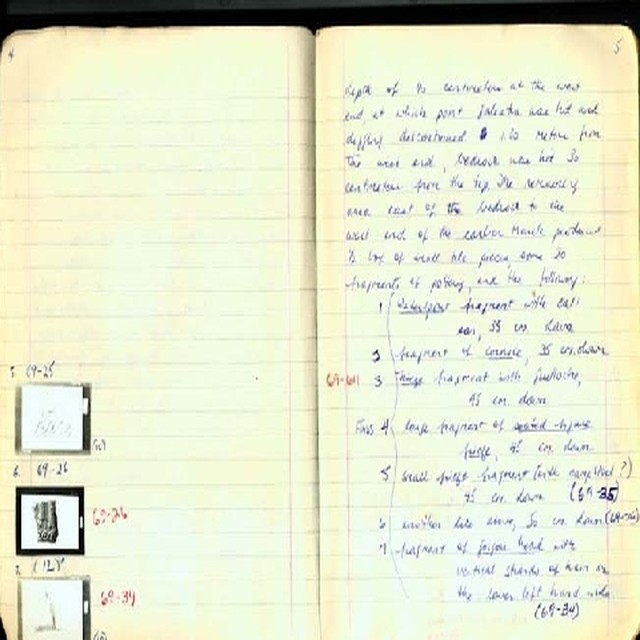 4
5. 69-25
6. 69-26
69-26
7. (128)
69-34
5
depth of 80 centimeters at the west
end, at which point was hit and
digging discontinued 1.20 meters from
the west end, bedrock was hit 30
centimeters from the top. The remaining
area east of the bedrock to the
west end of the earlier trench produced
½ box of small tile pieces some 30
fragments of pottery, and the following:
1 Waterspout fragment with cat's
ear, 35 cm. down
2 fragment of cornice, 35 cm. down
69-611 3 fragment with
95 cm. down
4 large fragment of
frieze, 95 cm. down
5 small frieze fragment (with ?)
95 cm. down (69-25)
6 another like above, 50 cm. down (69-26)
7 fragment of figure head with
vertical strands of hair on
the lower left hand side
(69-34)